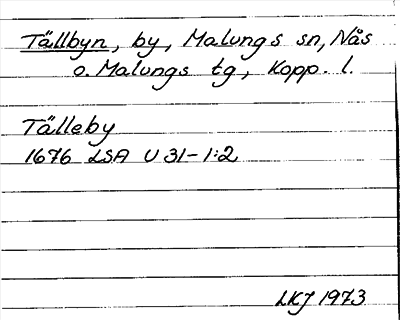 Tällbyn, by, Malungs sn, Nås
o. Malungs tg, Kopp. l.
Tälleby
1676 LSA U 31-1:2
LKJ 1973